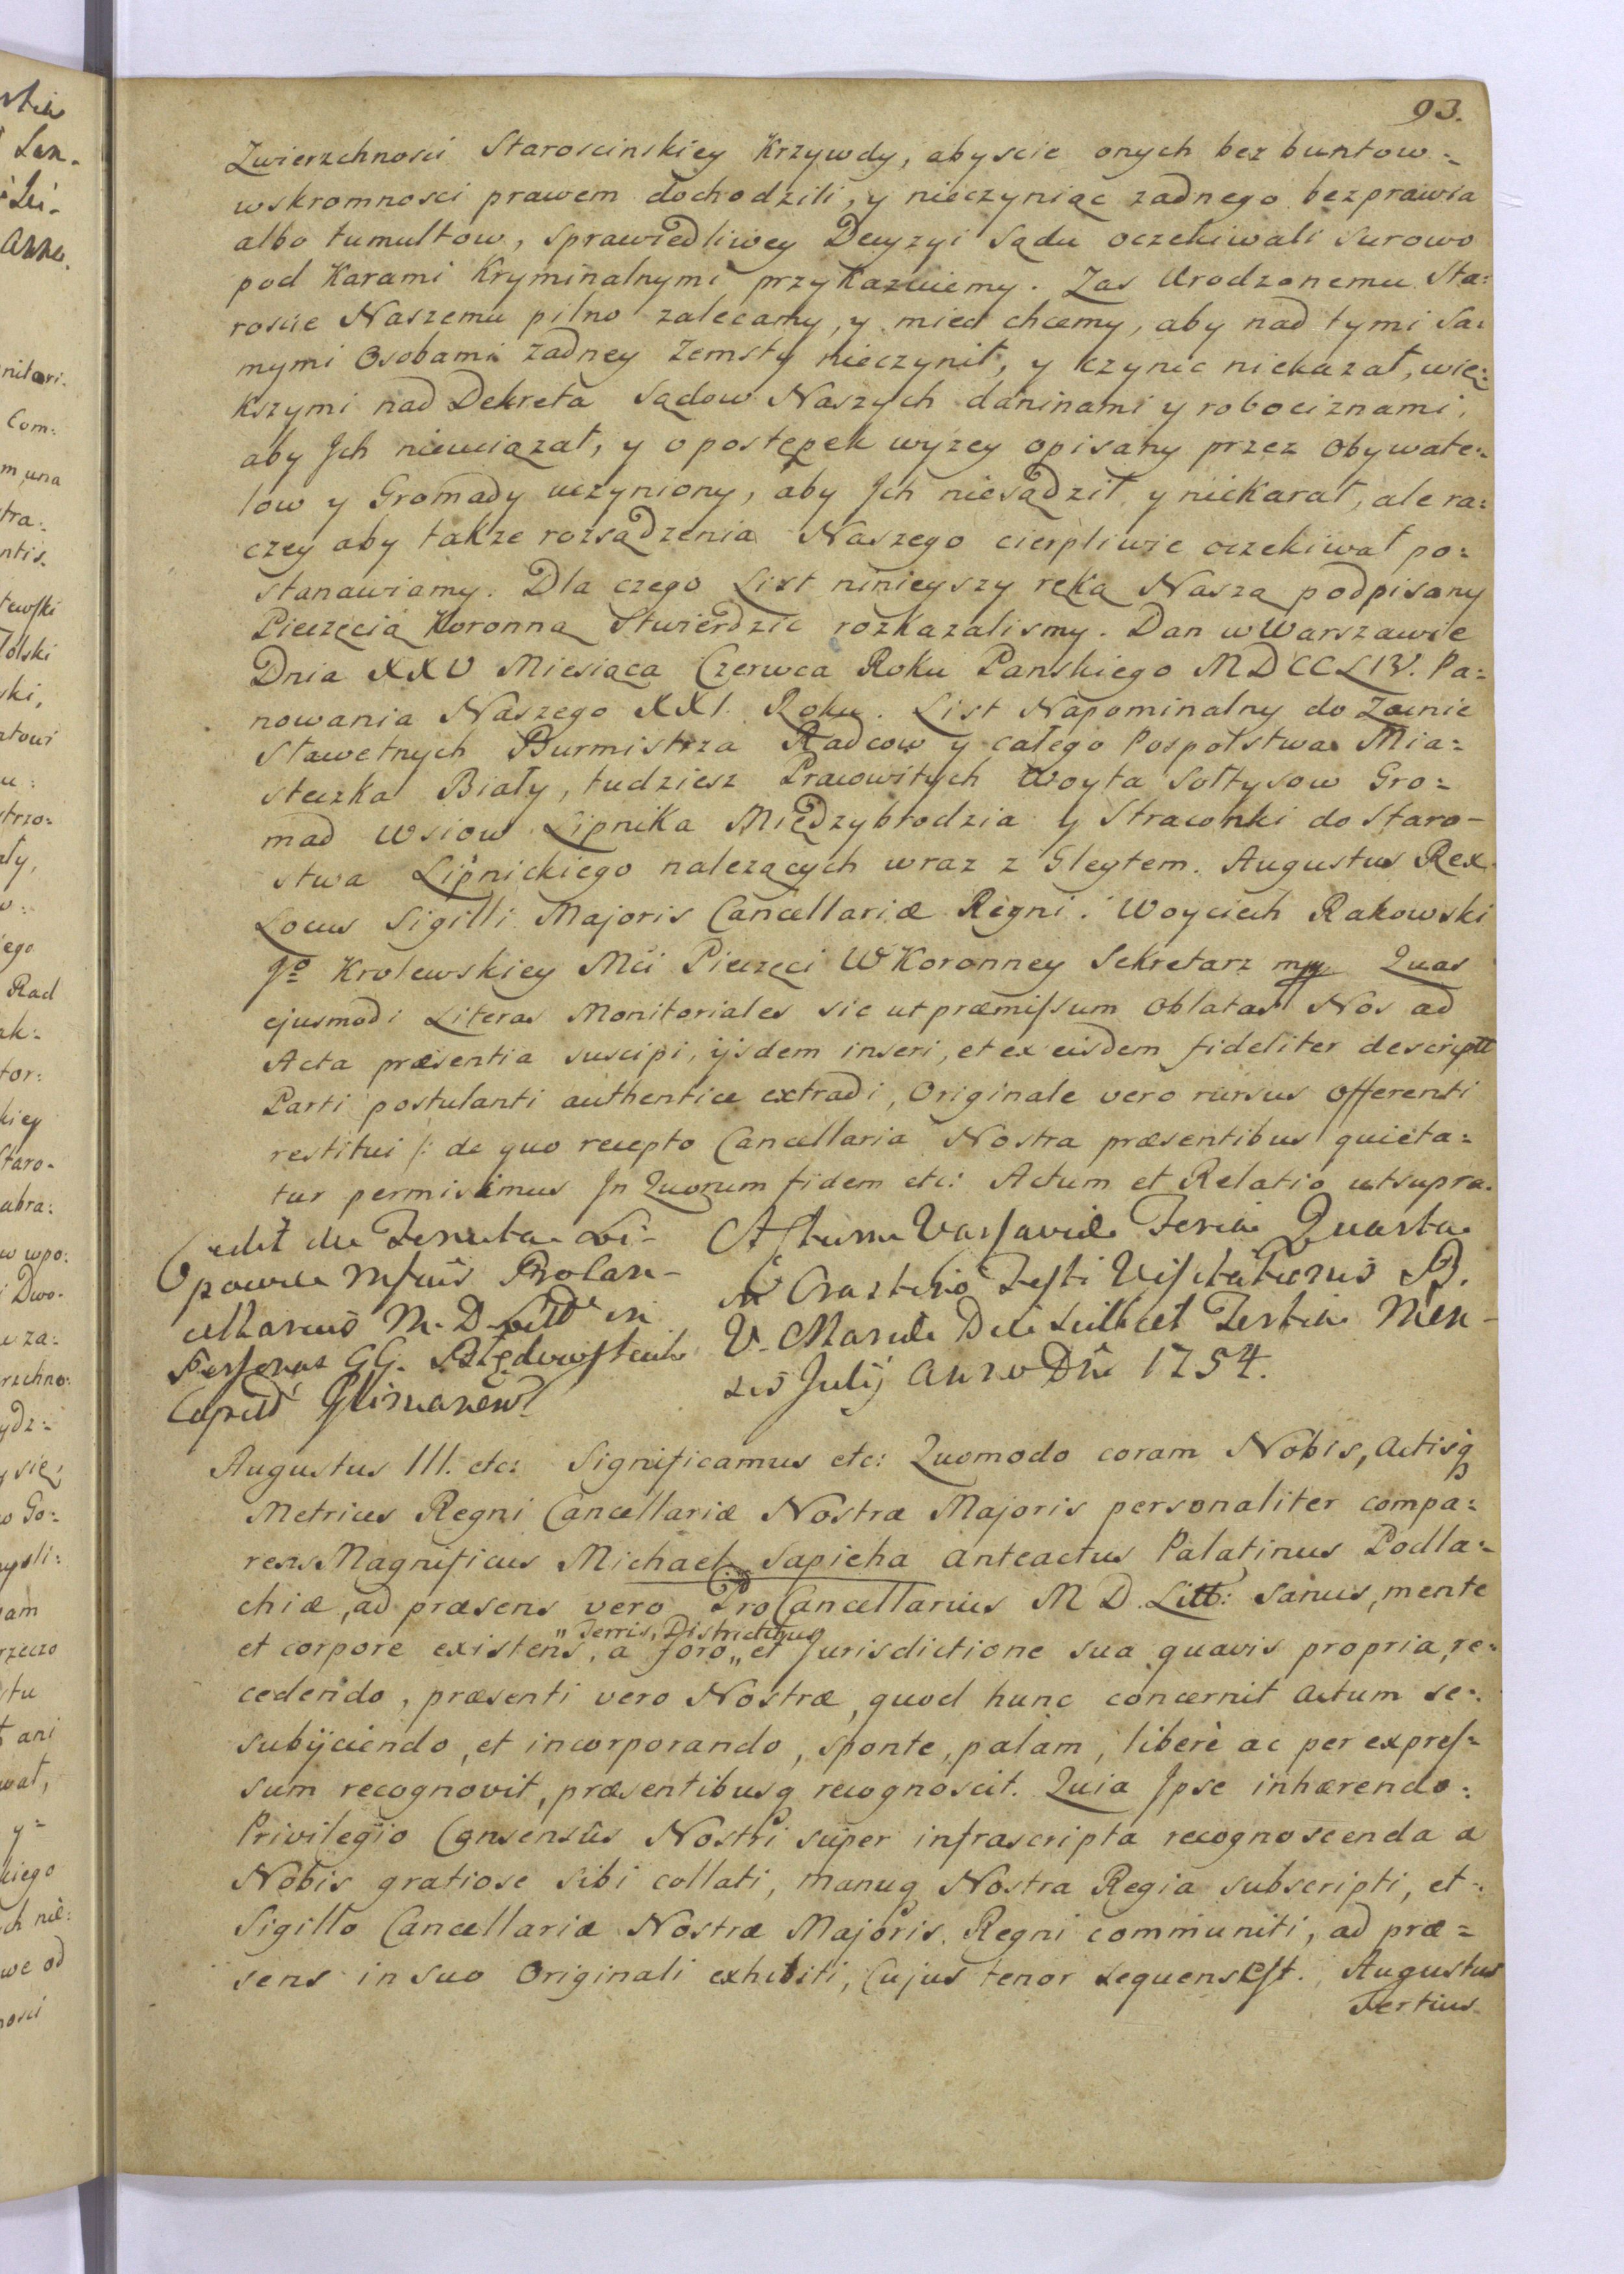 93.
Zwierzchnosci Staroscinskiey Krzywdy, abyscie onych bez buntow =
w skromnosci prawem dochodzili, y nieczyniąc zadnego bezprawia
albo tumultow, sprawiedliwey Decyzyi Sądu oczekiwali surowo
pod Karami Kryminalnymi przykazuiemy. Zas Urodzonemu Sta=
roscie Naszemu pilno zalecamy, y mieć chcemy, aby nad tymi sa=
mymi Osobami zadney Zemsty nieczynił, y czynic niekazał, wię=
kszymi nad Dekreta Sądow Naszych daninami y robociznami,
aby Jch nieuciązał, y o postępek wyzey opisany przez Obywate=
low y Gromady uczyniony, aby Jch niesądził y niekarał, ale ra=
czey aby takze rozsądzenia Naszego cierpliwie oczekiwał po=
stanawiamy. Dla czego List ninieyszy ręką Naszą podpisany
Pieczęcią Koronną Stwierdzić rozkazalismy. Dan w Warszawie
Dnia XXV Miesiąca Czerwca Roku Panskiego MDCCLIV. Pa=
nowania Naszego XXI. Roku. List Napominalny do Zacnie
Sławetnych Burmistrza Radcow y całego Pospolstwa Mia=
steczka Biały, tudziesz Pracowitych Woyta Sołtysow Gro=
mad Wsiow Lipnika Międzybrodzia y Straconki do Staro-
stwa Lipnickiego nalezących wraz z Gleytem. Augustus Rex.
Locus Sigilli Majoris Cancellariæ Regni. Woyciech Rakowski
Jo Krolewskiey Mci Pieczęci W Koronney Sekretarz mpp Quas
ejusmodi Literas Monitoriales sic ut præmissum Oblatas Nos ad
Acta præsentia suscipi, ijsdem inseri, et ex eisdem fideliter descriptt
Parti postulanti authentice extradi, Originale vero rursus Offerenti
restitui /: de quo recepto Cancellaria Nostra præsentibus quieta=
tur permisimus Jn Quorum fidem etc: Actum et Relatio ut supra.
Cedit de Tenuta Li-
powce Mfcus Procan-
cellarius M. D. Litt in
Personas GG. Błędowskich
Capitt
Actum Varsaviæ Feria Quarta
in Crastino Festi Visitationis B.
V. Mariæ Die scilicet Tertia Men-
sis Julij Anno Dni 1754.
Augustus III. etc: Significamus etc: Quomodo coram Nobis, Actisq
Metrices Regni Cancellariæ Nostræ Majoris personaliter compa=
rens Magnificus Michael Sapieha anteactus Palatinus Podla=
chiæ, ad præsens vero ProCancellarius M D. Litt: sanus, mente
et corpore existens, a foro „ et Jurisdictione sua quavis propria, re=
„ Terris, Districtibus
cedendo, præsenti vero Nostræ, quod hunc concernit actum se=
subijciendo, et incorporando, sponte, palam, liberè ac per expres=
sum recognovit, præsentibusq recognoscit. Quia Jpse inhærendo=
Privilegio Consensûs Nostri super infrascripta recognoscenda a
Nobis gratiose sibi collati, manuq Nostra Regia subscripti, et=
Sigillo Cancellariæ Nostræ Majoris Regni communiti, ad præ=
sens in suo Originali exhibiti, Cujus tenor sequens Est. Augustus
Tertius